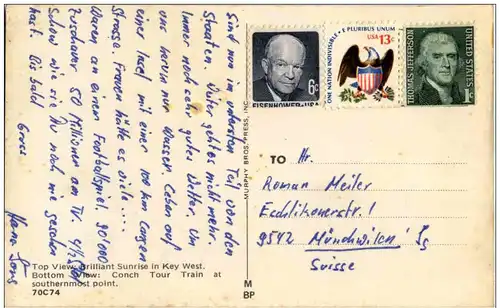 Sind nun im untersten Teil von den
Staaten. Tiefer gehts nicht mehr.
Immer noch sehr gutes Wetter. Um
uns herum nur Wasser. Leben auf
einer Insel mit einer 100 km langen
Strasse. Frauen hätte es viele....
Waren an einem Footballspiel. 90'000
Zuschauer 50 Millionen am TV.
Schow wie sie Du noch nie gesehen
hat. Bis bald
Gruss
Hans
Top View: Brilliant Sunrise in Key West.
Bottom View: Conch Tour Train at
southernmost point.
70C74
MURPHY BROS. PRESS, INC.
M
BP
6c
EISENHOWER·USA
E PLURIBUS UNUM
USA 13c
ONE NATION INDIVISIBLE
THOMAS JEFFERSON
UNITED STATES
1c
TO
Hr.
Roman Meiler
Eschlikonerstr. !
9542 Münchwilen Tg
Suisse